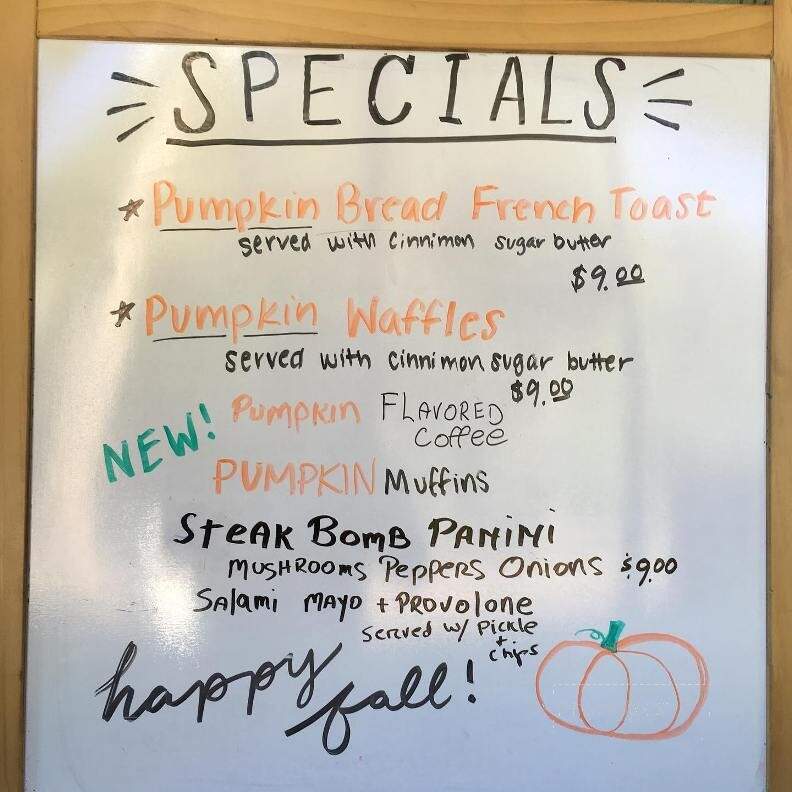 SPECIALS
* Pumpkin Bread French Toast
served with cinnimon sugar butter
$9.00
* Pumpkin Waffles
served with cinnimon sugar butter
$9.00
NEW! Pumpkin FLAVORED
Coffee
PUMPKIN Muffins
STEAK BOMB PANINI
MUSHROOMS PEPPERS ONIONS $9.00
SALAMI MAYO + PROVOLONE
Served w/ Pickle
+
chips
happy fall!